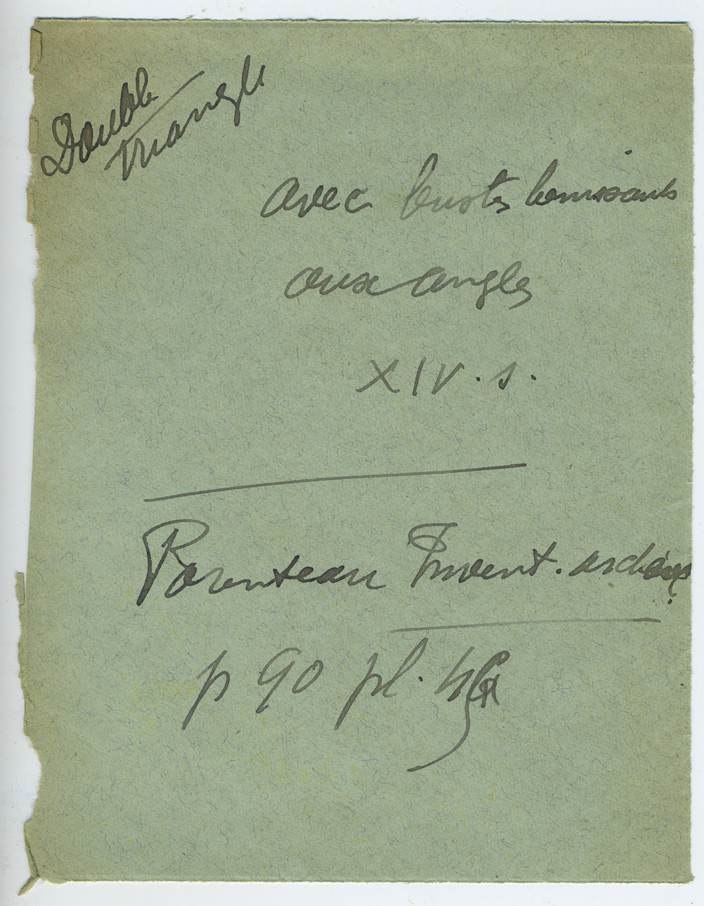 Double
triangle
avec bustes bennissants
aux angles
XIV. s.
Parenteau Invent. archéol.
p 90 pl. 45